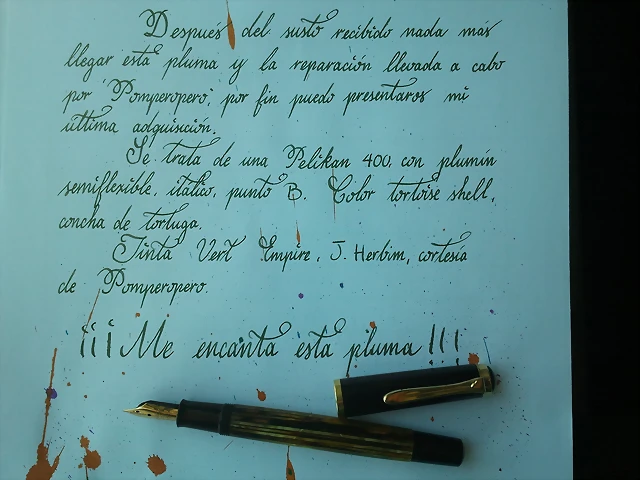 Después del susto recibido nada más
llegar esta pluma y la reparación llevada a cabo
por "Pomperopero", por fin puedo presentaros mi
última adquisición.
Se trata de una Pelikan 400, con plumín
semiflexible, itálico, punto B. Color tortoise shell,
concha de tortuga.
Tinta Vert Empire, J. Herbin, cortesía
de Pomperopero.
¡¡¡Me encanta esta pluma!!!